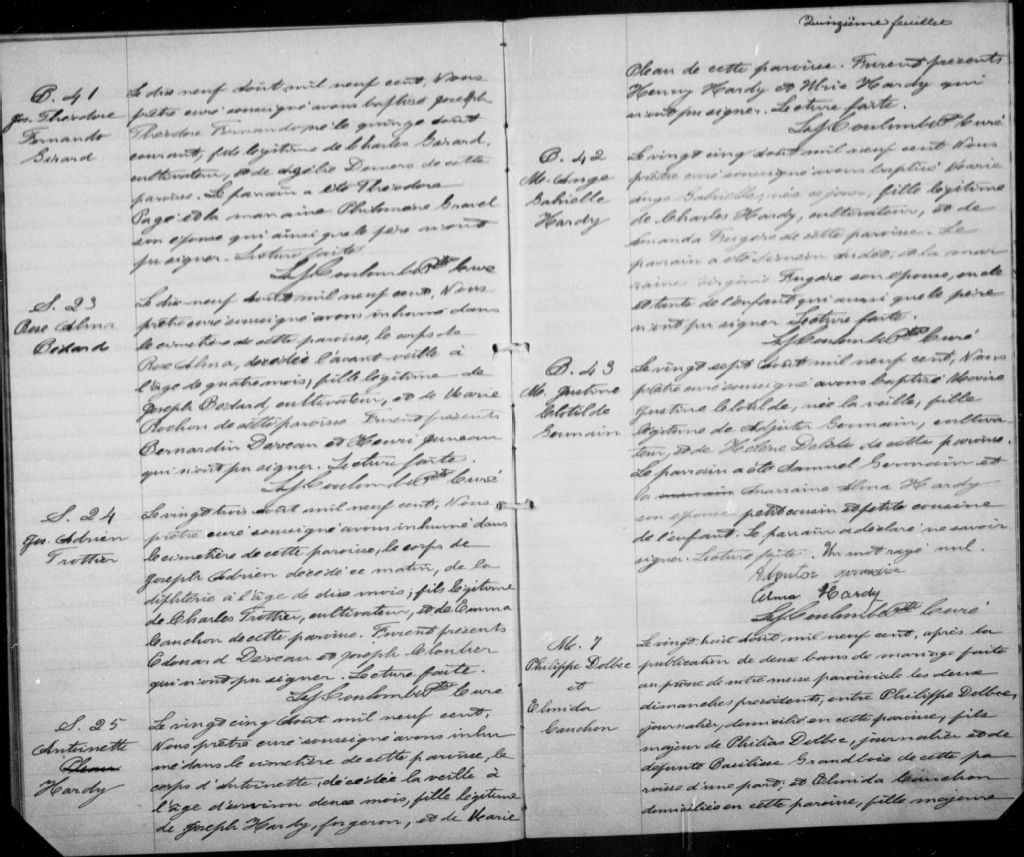 B. 41
Jos. Théodore
Fernando
Girard
Le dix neuf août mil neuf cent, Nous
prêtre curé soussigné avons baptisé Joseph
Théodore Fernando né le quinze août
courant, fils légitime de Charles Girard,
cultivateur, et de Demers de cette
paroisse. Le parrain a été Théodore
Pagé et la marraine Philomène Gravel
son épouse qui ainsi que le père n'ont
pu signer. Lecture faite
Coulombe Ptre Curé
S. 23
Rose Alma
Bédard
Le dix neuf août mil neuf cent, Nous
prêtre curé soussigné avons inhumé dans
le cimetière de cette paroisse, le corps de
Rose Alma, décédée l'avant veille à
l'âge de quatre mois, fille légitime de
Joseph Bédard, cultivateur, et de Marie
Rochon de cette paroisse. Furent présents
Bernardin Derveau et Henri Juneau
qui n'ont pu signer. Lecture faite.
Coulombe Ptre Curé
S. 24
Jos. Adrien
Trottier
Le vingt trois août mil neuf cent, Nous
prêtre curé soussigné avons inhumé dans
le cimetière de cette paroisse, le corps de
Joseph Adrien décédé ce matin, de la
diphterie à l'âge de dix mois, fils légitime
de Charles Trottier, cultivateur, et de Emma
Cauchon de cette paroisse. Furent présents
Edouard Derveau et Joseph Cloutier
qui n'ont pu signer. Lecture faite.
Coulombe Ptre Curé
S. 25
Antoinette
Pleau
Hardy
Le vingt cinq août mil neuf cent,
Nous prêtre curé soussigné avons inhu
mé dans le cimetière de cette paroisse, le
corps d'Antoinette, décédée la veille à
l'âge d'environ deux mois, fille légitime
de Joseph Hardy, forgeron, et de Marie
Quinzième feuillet
Pleau de cette paroisse. Furent présents
Henry Hardy et Ulric Hardy qui
n'ont pu signer. Lecture faite.
Coulombe Ptre Curé
B. 42
M. Ange
Gabrielle
Hardy
Le vingt cinq août mil neuf cent Nous
prêtre curé soussigné avons baptisé Marie
Ange Gabrielle, née ce jour, fille légitime
de Charles Hardy, cultivateur, et de
Amanda Fugère de cette paroisse. Le
parrain a été Siméon et la mar
raine Virginie Fugère son épouse, oncle
et tante de l'enfant qui aussi que le père
n'ont pu signer Lecture faite.
Coulombe Ptre Curé
B. 43
M. Justine
Clotilde
Germain
Le vingt sept août mil neuf cent, Nous
prêtre curé soussigné avons baptisé Marie
Justine Clotilde, née la veille, fille
légitime de Adjutor Germain, cultiva
teur, et de Hélène Delisle de cette paroisse.
Le parrain a été Samuel Germain et
la marraine Alma Hardy
son épouse petit cousin et petite cousine
de l'enfant. Le parrain a déclaré ne savoir
signer. Lecture faite. Un mot rayé nul.
Adjutor Germain
Alma Hardy
Coulombe Ptre Curé
M. 7
Philippe Dolbec
et
Elmida
Cauchon
Le vingt huit août mil neuf cent, après la
publication de deux bans de mariage faite
au prône de notre messe paroissiale les deux
dimanches précédents, entre Philippe Dolbec,
journalier, domicilié en cette paroisse, fils
majeur de Philias Dolbec, journalier et de
défunte Basilisse Grandbois de cette pa
roisse d'une part, et Elmida Cauchon
domiciliée en cette paroisse, fille majeure